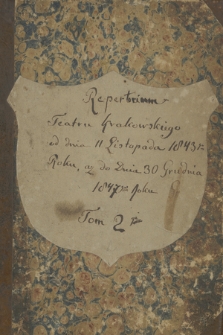 Repertorium
Teatru Krakowskiego
od dnia 11 Listopada 1843 r.
Roku, aż do Dnia 30 Grudnia
1847 r. Roku
Tom 2 i